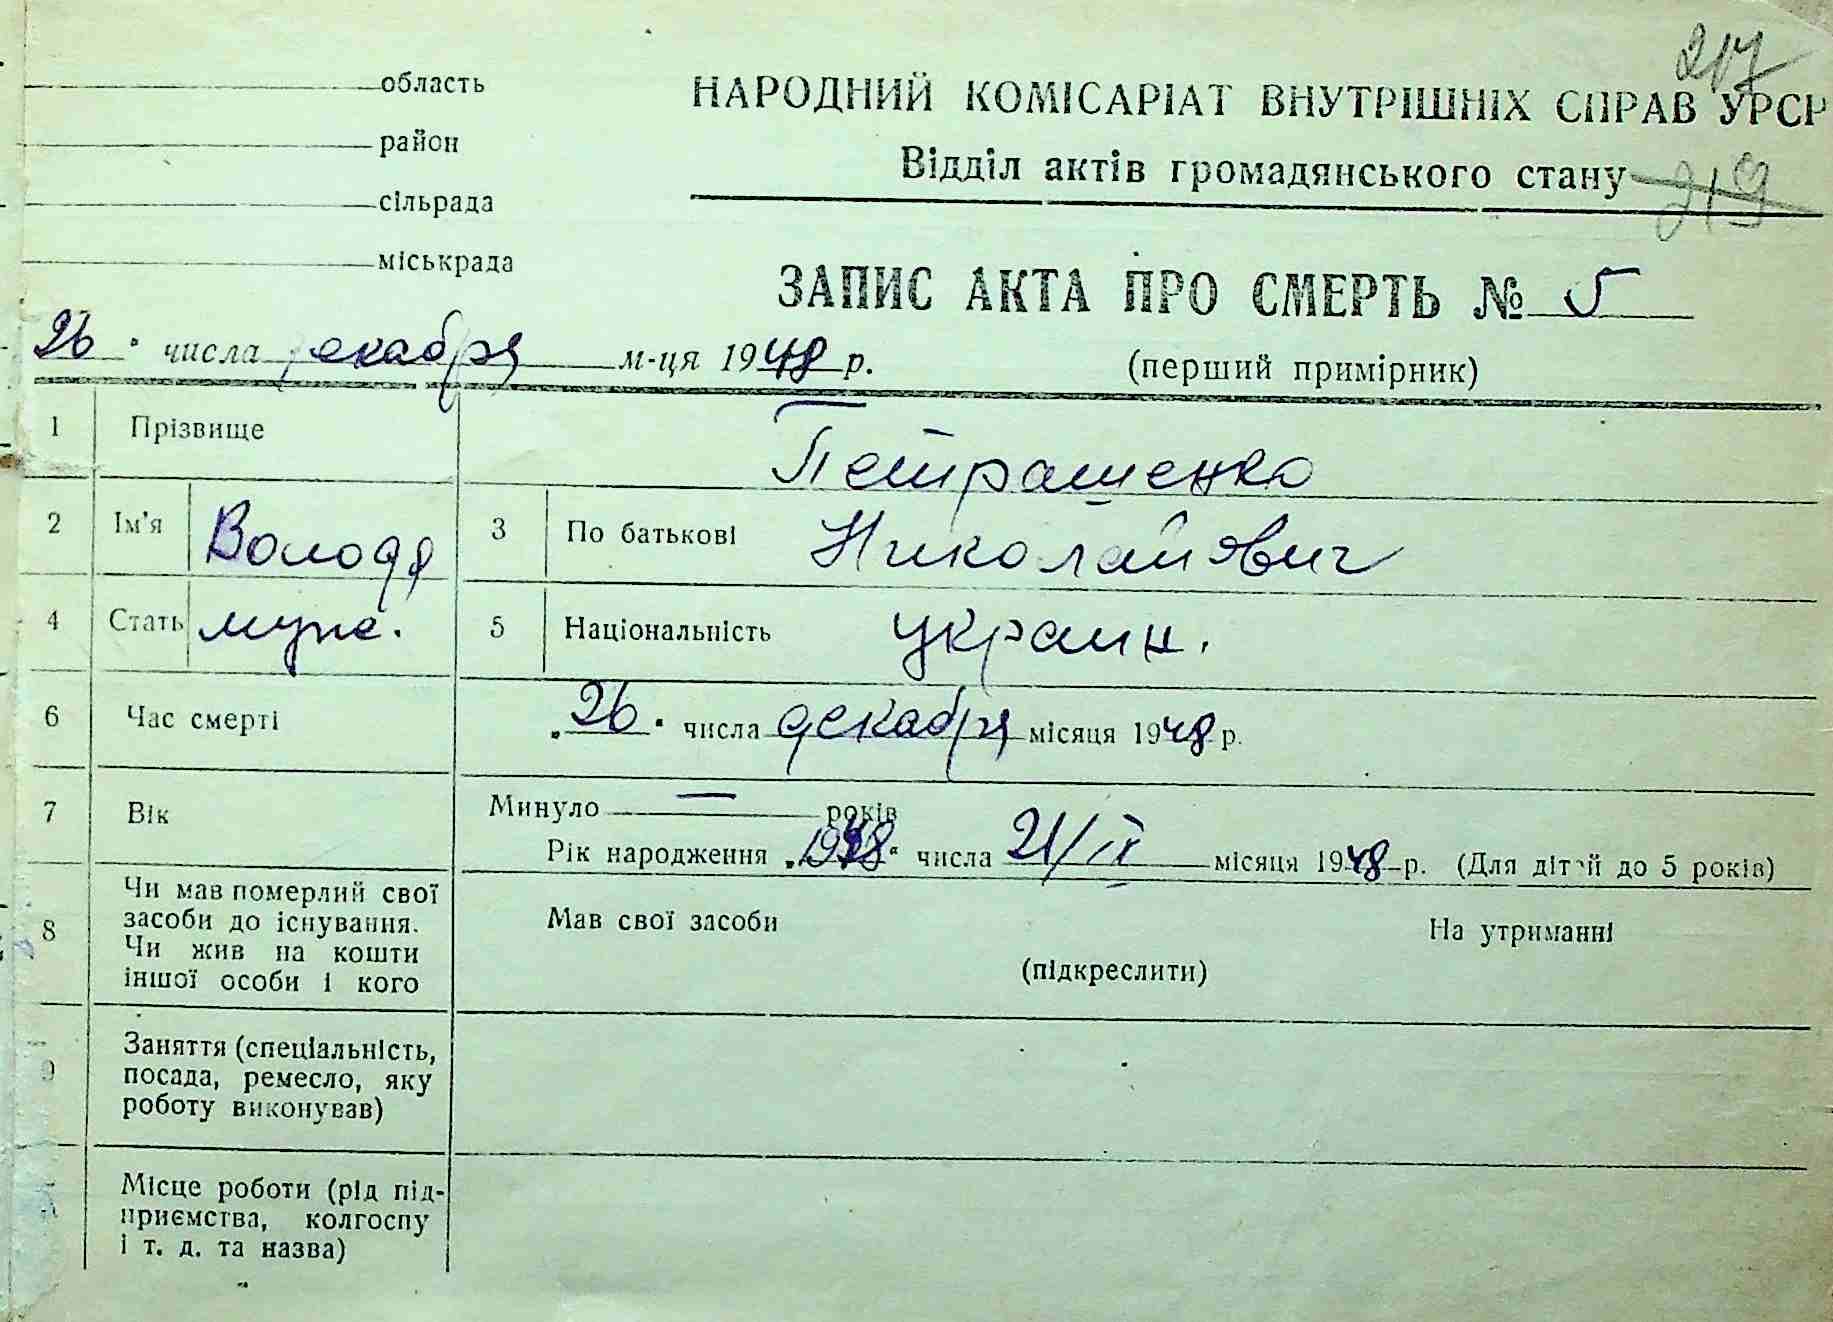 217
область
НАРОДНИЙ КОМІСАРІАТ ВНУТРІШНІХ СПРАВ УРСР
район
Відділ актів громадянського стану
219
сільрада
міськрада
ЗАПИС АКТА ПРО СМЕРТЬ № 5
26 числа декабря м-ця 1948 р.
(перший примірник)
1 Прізвище Петрашенко
2 Ім'я Володя 3 По батькові Николайович
4 Стать муж. 5 Національність украин.
6 Час смерті „26" числа декабря місяця 1948 р.
7 Вік Минуло — років
Рік народження „1948" числа 21/IX місяця 1948 р. (Для дітей до 5 років)
8 Чи мав померлий свої
засоби до існування.
Чи жив на кошти
іншої особи і кого
Мав свої засоби На утриманні
(підкреслити)
9 Заняття (спеціальність,
посада, ремесло, яку
роботу виконував)
Місце роботи (рід під-
приємства, колгоспу
і т. д. та назва)